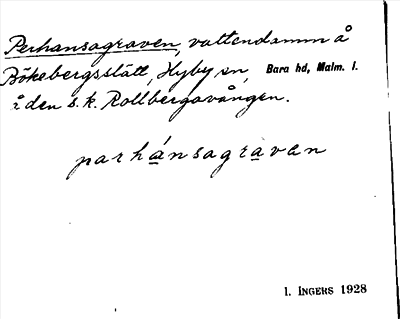 Perhansagraven, vattendamm å
Bökebergsslätt, Hyby sn, Bara hd, Malm. l.
i den s.k. Rollbergavången.
parhánsagravan
I. INGERS 1928